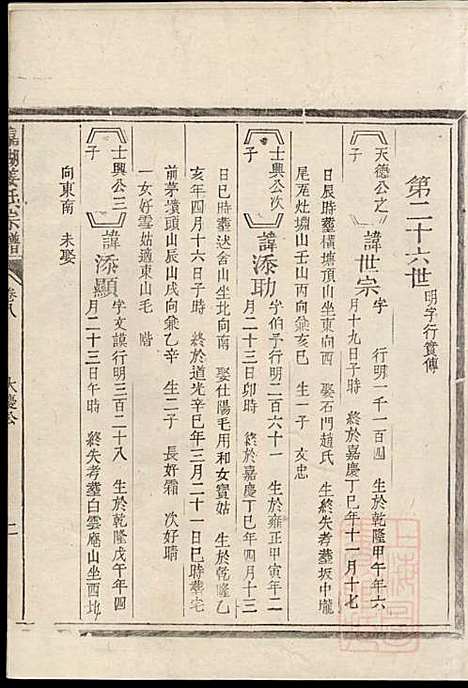 第二十六世 明字行實傳
天德公之子
諱世宗 字 行明一千一百四 生於乾隆甲午年六
月十九日子時 終於嘉慶丁巳年十一月十七
日辰時塟橫塘頂山坐東向西 娶石門趙氏 生終失考塟坂中壠
尾菴灶壋山壬山丙向兼亥巳 生一子 文忠
士興公次子
諱添助 字伯予行明二百六十一 生於雍正甲寅年二
月二十三日卯時 終於嘉慶丁巳年四月十三
日巳時塟送舍山坐北向南 娶仕陽毛用和女寳姑 生於乾隆乙
亥年四月十六日子時 終於道光辛巳年三月二十一日巳時塟宅
前茅墩頭山辰山戌向兼乙辛 生二子 長好霜 次好晴
一女好雪姑適東山毛 階
士興公三子
諱添顯 字文謨行明三百二十八 生於乾隆戊午年四
月二十三日午時 終失考塟白雲菴山坐西北
向東南 未娶
姜氏宗譜
卷八
大慶公
二